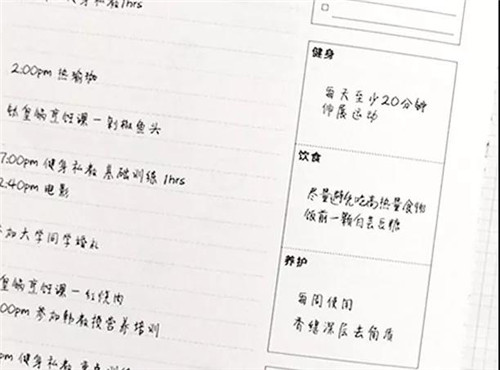 健身私教1hrs
2:00pm 热瑜珈
钛皇锅烹饪课－剁椒鱼头
7:00pm 健身私教 基础训练 1hrs
2:40pm 电影
参加大学同学婚礼
皇锅烹饪课－红烧肉
00pm 参加韩教授营养培训
pm 健身私教
健身
每天至少20分钟
伸展运动
饮食
尽量避免吃高热量食物
饭前一颗白芸豆糖
养护
每周使用
香缇深层去角质